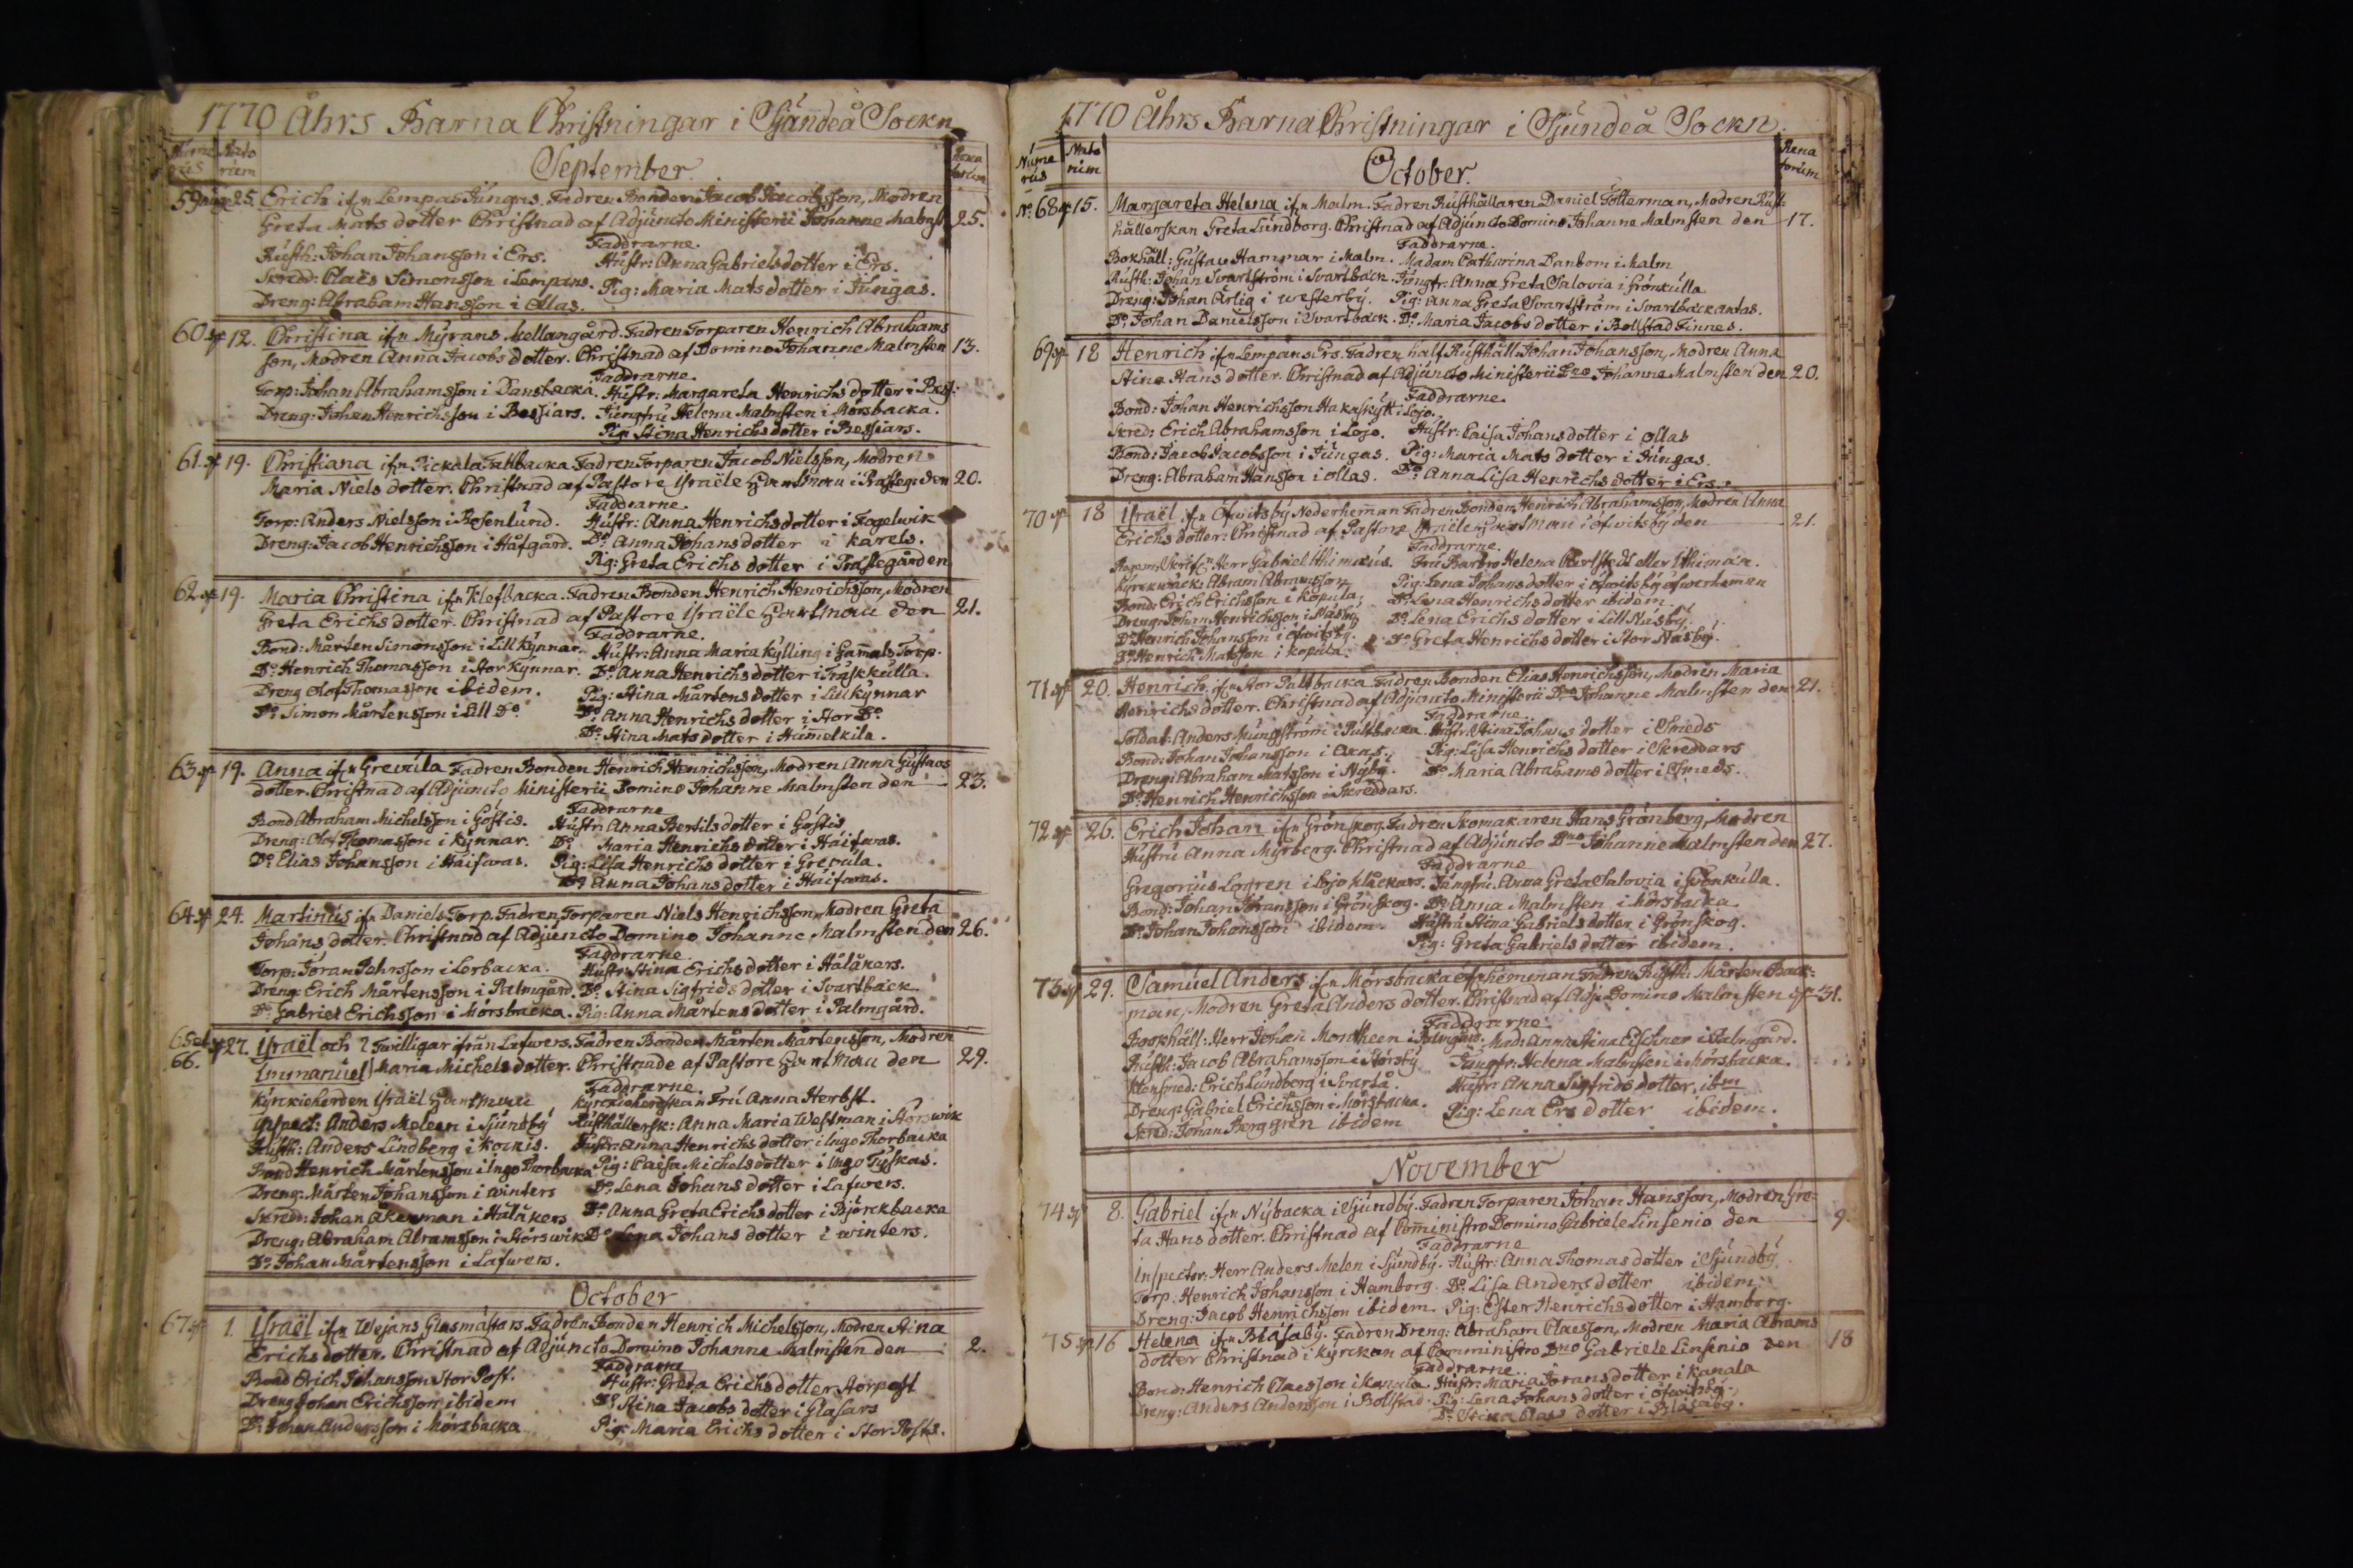 1770 Åhrs Barna Christningar i Sjúndeå Sockn
Núme rús
Nato rúm
September.
Rena torúm
59 Aúg: 25. Erich ifrn Lempas Júngas. Fadren Bonden Jacob Jacobsson, Modren
Greta Mats dotter Christnad af Adjúncto Ministerii Johanne Malmst 25.
Faddrarne.
Rústh: Johan Johansson i Ers. Hústr: Anna Gabrielsdotter i Ers.
Skredd: Claës Simonsson i Lempans. Pig: Maria Mats dotter i Júngas.
Dreng: Abraham Hansson i Ollas.
60. 12. Christina ifrn Mÿrans Mellangård. Fadren Torparen Henrich Abrahams
son, Modren Anna Jacobs dotter. Christnad af Domino Johanne Malmsten 13.
Faddrarne.
Torp: Johan Abrahamsson i Dansbacka. Hústr: Margareta Henrichs dotter i
Dreng: Johan Henrichsson i Bessiars. Júngfrú Helena Malmsten i Mörsbacka.
Pig: Stina Henrichs dotter i Bessiars.
61. 19. Christiana ifrn Pickala Fallbacka. Fadren Torparen Jacob Nielsson, Modren
Maria Niels dotter. Christnad af Pastore Israële i Prästeg: den 20.
Faddrarne.
Torp: Anders Nielsson i Rosenlúnd. Hústr: Anna Henrichsdotter i Fogelwik
Dreng: Jacob Henrichsson i Håfgård. Do Anna Johans dotter i Karels.
Pig: Greta Erichs dotter i Prästegården
62. 19. Maria Christina ifrn Klefbacka. Fadren Bonden Henrich Henrichsson, Modren
Greta Erichs dotter. Christnad af Pastore Israële den 21.
Faddrarne.
Bond: Mårten Simonsson i Lill Kÿnnar. Hústr: Anna Maria Kÿlling i Gam̄als Torp.
Do Henrich Thomasson i Stor Kÿnnar. Do Anna Henrichs dotter i Träskkúlla.
Dreng Olof Thomasson ibidem. Pig: Stina Mårtens dotter i Lill Kÿnnar
Do Simon Mårtensson i Lill Do Do Anna Henrichs dotter i Stor Do
Do Stina Mats dotter i Húm̄elkila.
63. 19. Anna ifrn Grevúla Fadren Bonden Henrich Henrichsson, Modren Anna Gústavs
dotter. Christnad af Adjúncto Ministerii Domino Johanne Malmsten den 23.
Faddrarne
Bond Abraham Michelsson i Göstis. Hústr: Anna Bertils dotter i Göstis
Dreng: Olof Thomasson i Kÿnnar. Do Maria Henrichs dotter i Häifwas.
Do Elias Johansson i Häifwas. Pig: Lisa Henrichs dotter i Grevúla.
Do Anna Johans dotter i Häifwas.
64. 24. Martinús ifrn Daniels Torp. Fadren Torparen Niels Henrichsson, Modren Greta
Johans dotter. Christnad af Adjúncto Domino Johanne Malmsten den 26.
Faddrarne.
Torp: Jöran Pehrsson i Lerbacka. Hústr: Stina Erichs dotter i Hålåkers.
Dreng: Erich Mårtensson i Palmgård. Do Stina Sigfrids dotter i Svartbäck
Do Gabriel Erichsson i Mörsbacka. Pig: Anna Mårtens dotter i Palmgård.
65 et 27. Israël och Twillingar ifrån Lafwers. Fadren Bonden Mårten Mårtensson, Modren
66. Immanúel Maria Michels dotter. Christnade af Pastore den 29.
Faddrarne.
Kÿrckioherden Israël Kÿrckioherdskan Frú Anna Herbst.
Inspect: Anders Meleen i Sjúndbÿ Rústhållersk: Anna Maria Westman i Störswik
Rústh: Anders Lindberg i Kockis. Hústr: Anna Henrichs dotter i Ingo Thorbacka
Bond Henrich Mårtensson i Ingo Thorbacka Pig: Caisa Michels dotter i Ingo Tÿskas.
Dreng: Mårten Johansson i Winters Do Lena Johans dotter i Lafwers.
Skredd: Johan Åkerman i Hålåkers Do Anna Greta Erichs dotter i Björckbacka
Dreng: Abraham Abramsson i Störswik Do Lena Johans dotter i Winters.
Do Johan Mårtensson i Lafwers.
October
67. 1. Israël ifrn Wejans Glasmästars. Fadren Bonden Henrich Michelsson, Modren Stina
Erichs dotter. Christnad af Adjúncto Domino Johanne Malmsten den 2.
Faddrarne
Bond Erich Johansson Stor Post. Hústr: Greta Erichsdotter Storpost
Dreng Johan Erichsson ibidem Do Stina Jacobs dotter i Glasars
Do Johan Andersson i Mörsbacka Pig: Maria Erichs dotter i Stor Posts.
1770 Åhrs Barna Christningar i Sjúndeå Sockn.
Núme rús
Nato rúm
October.
Rena torúm
No. 68 15. Margareta Helena ifrn Malm. Fadren Rústhållaren Daniel Tötterman, Modren Rúst:
hållerskan Greta Lúndborg. Christnad af Adjúncto Domino Johanne Malmsten den 17.
Faddrarne.
Bokhåll: Gústav Hammar i Malm. Madam Catharina Danbom i Malm
Rústh: Johan Svartström i Svartbäck. Júngfr: Anna Greta Salovia i Grönkúlla
Dreng: Johan Ärlig i Westerbÿ. Pig: Anna Greta Svartström i Svartbäck
Do Johan Danielsson i Svartbäck. Do Maria Jacobs dotter i Bollstad Finnes.
69 18 Henrich ifrn Lempans Ers. Fadren half Rústhåll: Johan Johansson, Modren Anna
Stina Hans dotter. Christnad af Adjúncto Ministerii Dno Johanne Malmsten den 20.
Faddrarne.
Bond: Johan Henrichsson Hakaskÿtt i Lojo.
Skred: Erich Abrahamsson i Lojo. Hústr: Caisa Johans dotter i Ollas
Bond: Jacob Jacobsson i Júngas. Pig: Maria Mats dotter i Júngas.
Dreng: Abraham Hansson i Ollas. Do Anna Lisa Henrichs dotter i Ers.
70 18 Israël ifrn Öfwitsbÿ Nederhem̄an Fadren Bonden Henrich Abrahamsson, Modren Anna
Erichs dotter: Christnad af Pastore Israële i Öfwitsbÿ den 21.
Faddrarne.
Herr Gabriel Frú Barbro Helena eller
Kÿrckiowäck: Abram Abramsson Pig: Lena Johans dotter i Öfwitsbÿ öfwerheman
Bond: Erich Erichsson i Kopula. Do Lena Henrichs dotter ibidem.
Dreng: Johan Henrichsson i Näsbÿ Do Lena Erichs dotter i Lill Näsbÿ.
Do Henrich Johansson i Öfwitsbÿ. Do Greta Henrichs dotter i Stor Näsbÿ.
Do Henrich Matsson i Kopula.
71 20. Henrich ifrn Stor Pallbacka Fadren Bonden Elias Henrichsson, Modren Maria
Henrichs dotter. Christnad af Adjúncto Ministerii Dno Johanne Malmsten den 21.
Faddrarne
Soldat: Anders Múngström i Hústr: Stina Johans dotter i Smeds
Bond: Johan Johansson i Pig: Lisa Henrichs dotter i Skreddars
Dreng: Abraham Matsson i Nÿbÿ. Do Maria Abrahams dotter i Smeds.
Do Henrich Henrichsson i Skreddars.
72 26. Erich Johan ifrn Grönskog. Fadren Skomakaren Hans Grönberg, Modren
Hústrú Anna Mÿrberg. Christnad af Adjúncto Dno Johanne Malmsten den 27.
Faddrarne
Gregoriús Logren i Lojo klåckars. Júngfrú. Anna Greta Salovia i Grönkúlla.
Bond: Johan Jöransson i Grönskog. Do Anna Malmsten i Mörsbacka
Do Johan Johansson ibidem. Hústrú Stina Gabriels dotter i Grönskog.
Pig: Greta Gabriels dotter ibidem.
73 29. Samúel Anders ifrn Mörsbacka öfrheman. Fadren Rústh: Mårten Back:
man, Modren Greta Anders dotter. Christnad af Adj: Domino Malmsten 31.
Faddrarne.
Bookhåll: Herr Johan Montheen i Palmgård. Mad: Anna Stina Eischner i Palmgård.
Rústh: Jacob Abrahamsson i Störsbÿ. Júngfr: Helena Malmsten i Mörsbacka.
Klensmed: Erich Lúndberg i Svartå. Hústr: Anna Sigfrids dotter. ibm
Dreng: Gabriel Erichsson i Mörsbacka. Pig: Lena Ers dotter ibidem.
Skred: Johan Berggren ibidem
November
74 8. Gabriel ifrn Nÿbacka i Sjúndbÿ. Fadren Torparen Johan Hansson, Modren Gre:
ta Hans dotter. Christnad af Com̄inistro Domino Gabriele Linsenio den 9.
Faddrarne
Inspector: Herr Anders Melen i Sjúndbÿ. Hústr: Anna Thomas dotter i Sjúndbÿ
Torp: Henrich Johansson i Hamborg. Do Lisa Anders dotter ibidem
Dreng: Jacob Henrichsson ibidem. Pig: Ester Henrichsdotter i Hamborg.
75. 16 Helena ifrn Blåsabÿ. Fadren Dreng: Abraham Claesson, Modren Maria Abrams
dotter Christnad i Kÿrckan af Comministro Dno Gabriele Linsenio den 18
Faddrarne
Bond: Henrich Claesson i Kanala. Hústr: Maria Jörans dotter i Kanala
Dreng: Anders Andersson i Bollstad. Pig: Lena Johans dotter i Öfwitsbÿ.
Do Stina Claes dotter i Blåsabÿ.